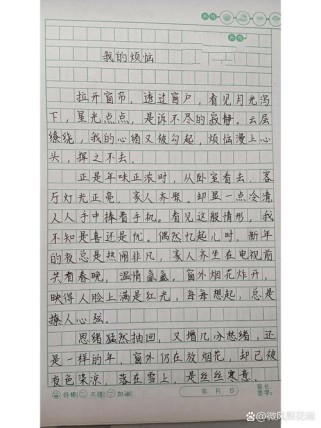 我的烦恼
拉开窗帘，透过窗户，看见月光泻
下，星光点点，是诉不尽的寂静。云层
缭绕，我的心绪又被勾起，烦恼漫上心
头，挥之不去。
正是年味正浓时，从卧室看去，客
厅灯光正亮，家人齐聚。却显一点冷清
人人手中捧着手机。看见这般情形，我
不知是喜还是忧。偶然忆起儿时，新年
的夜总是热闹非凡，家人齐坐在电视前
共看春晚，温情盈盈，窗外烟花炸开，
映得人脸上满是红光，每每想起，总是
撩人心弦。
思绪猛然抽回，又增几分愁绪，还
是一样的年，窗外仍在放烟花，却已被
夜色染凉，落在雪上，是丝丝寒意。
@微风繁花